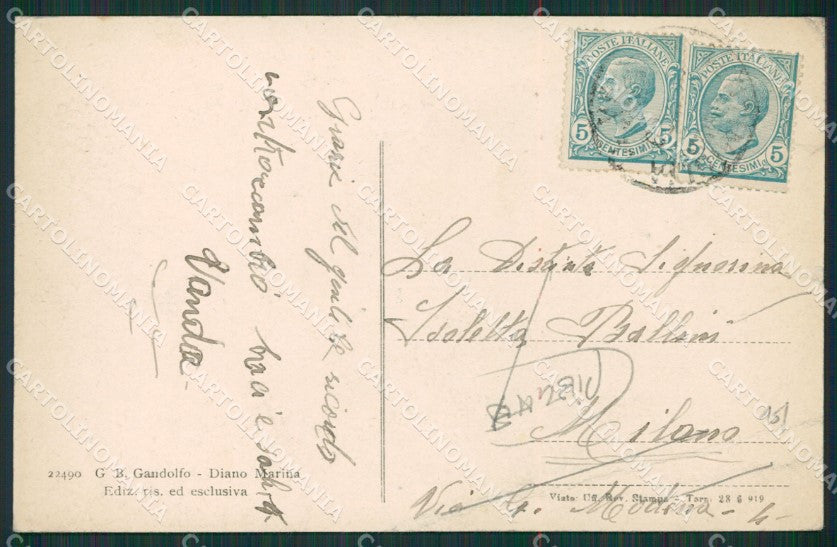 POSTE ITALIANE
5 5
CENTESIMI
POSTE ITALIANE
5 5
CENTESIMI
Grazie del gentile ricordo
contraccambio baci e saluti
Vanda
La Distinta Signorina
Isoletta Ballini
Milano
151
Via G. Modena - 4
22490 G. B. Gandolfo - Diano Marina
Ediz. ris. ed esclusiva
Visto Uff. Rev. Stampa - Tarn. 28 6 919
CARTOLINOMANIA